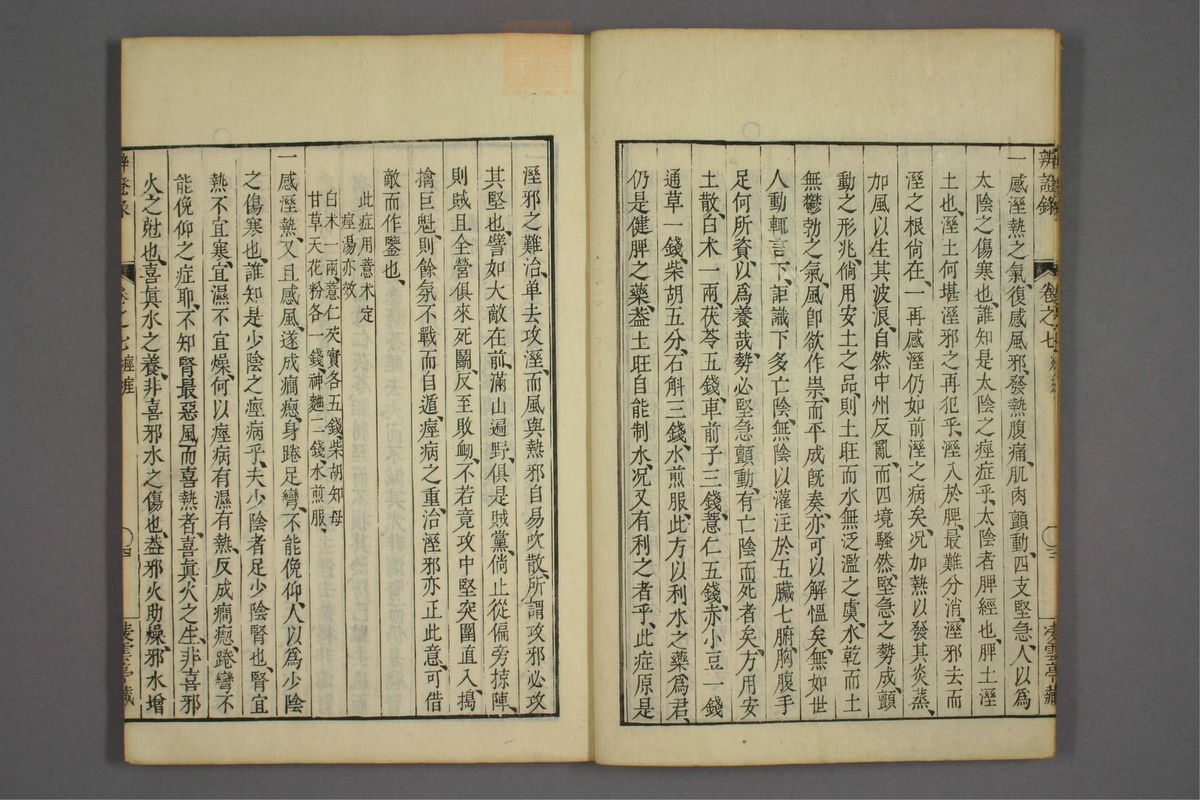 辨證錄 卷之七 三 凌雲亭藏
一感溼熱之氣、復感風邪、發熱腹痛、肌肉顫動、四支堅急、人以爲
太陰之傷寒也、誰知是太陰之痙症乎、太陰者脾經也、脾土溼
土也、溼土何堪溼邪之再犯乎、溼入於脾、最難分消、溼邪去而
溼之根倘在、一再感溼仍如前溼之病矣、况加熱以發其炎蒸、
加風以生其波浪、自然中州反亂、而四境騷然、堅急之勢成、顫
動之形兆、倘用安土之品、則土旺而水無泛濫之虞、水乾而土
無鬱勃之氣、風卽欲作祟、而平成旣奏、亦可以解慍矣、無如世
人動輒言下、詎識下多亡陰、無陰以灌注於五臟七腑、胸腹手
足何所資、以爲養哉、勢必堅急顫動、有亡陰而死者矣、方用安
土散、白朮一兩、茯苓五錢、車前子三錢、薏仁五錢、赤小豆一錢
通草一錢、柴胡五分、石斛三錢、水煎服、此方以利水之藥爲君、
仍是健脾之藥、葢土旺自能制水、况又有利之者乎、此症原是
溼邪之難治、单去攻溼、而風與熱邪自易吹散、所謂攻邪必攻
其堅也、譬如大敵在前、滿山遍野、俱是賊黨、倘止從偏旁掠陣、
則賊且全營俱來死鬬、反至敗衂、不若竟攻中堅突圍直入、搗
擒巨魁、則餘氛不戰而自遁、痙病之重、治溼邪亦正此意、可借
敵而作鑒也、
此症用薏朮定
痙湯亦效
白朮一兩薏仁芡實各五錢、柴胡知母
甘草天花粉各一錢、神麯二錢水煎服、
一感溼熱、又且感風、遂成癇瘛、身踡足彎、不能俛仰、人以爲少陰
之傷寒也、誰知是少陰之痙病乎、夫少陰者足少陰腎也、腎宜
熱不宜寒、宜濕不宜燥、何以痙病有濕有熱、反成癇瘛、踡彎不
能俛仰之症耶、不知腎最惡風而喜熱者、喜眞火之生、非喜邪
火之尅也、喜眞水之養、非喜邪水之傷也、葢邪火助燥、邪水增
辨證錄 卷之七 痙痓 四 凌雲亭藏